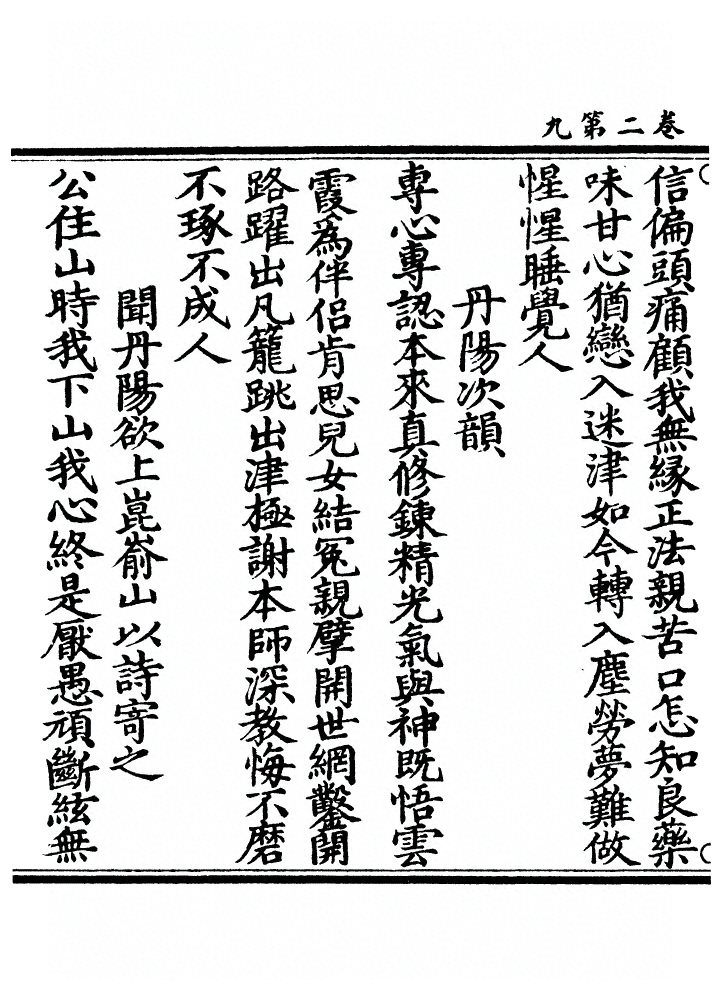 卷二第九
信偏頭痛顧我無緣正法親苦口怎知良藥
味甘心猶戀入迷津如今轉入塵勞夢難做
惺惺睡覺人
丹陽次韻
專心專認本來真修鍊精光氣與神既悟雲
霞為伴侶肯思兒女結冤親擘開世網鑿開
路躍出凡籠跳出津極謝本師深教悔不磨
不琢不成人
聞丹陽欲上崑嵛山以詩寄之
公住山時我下山我心終是厭愚頑斷絃無